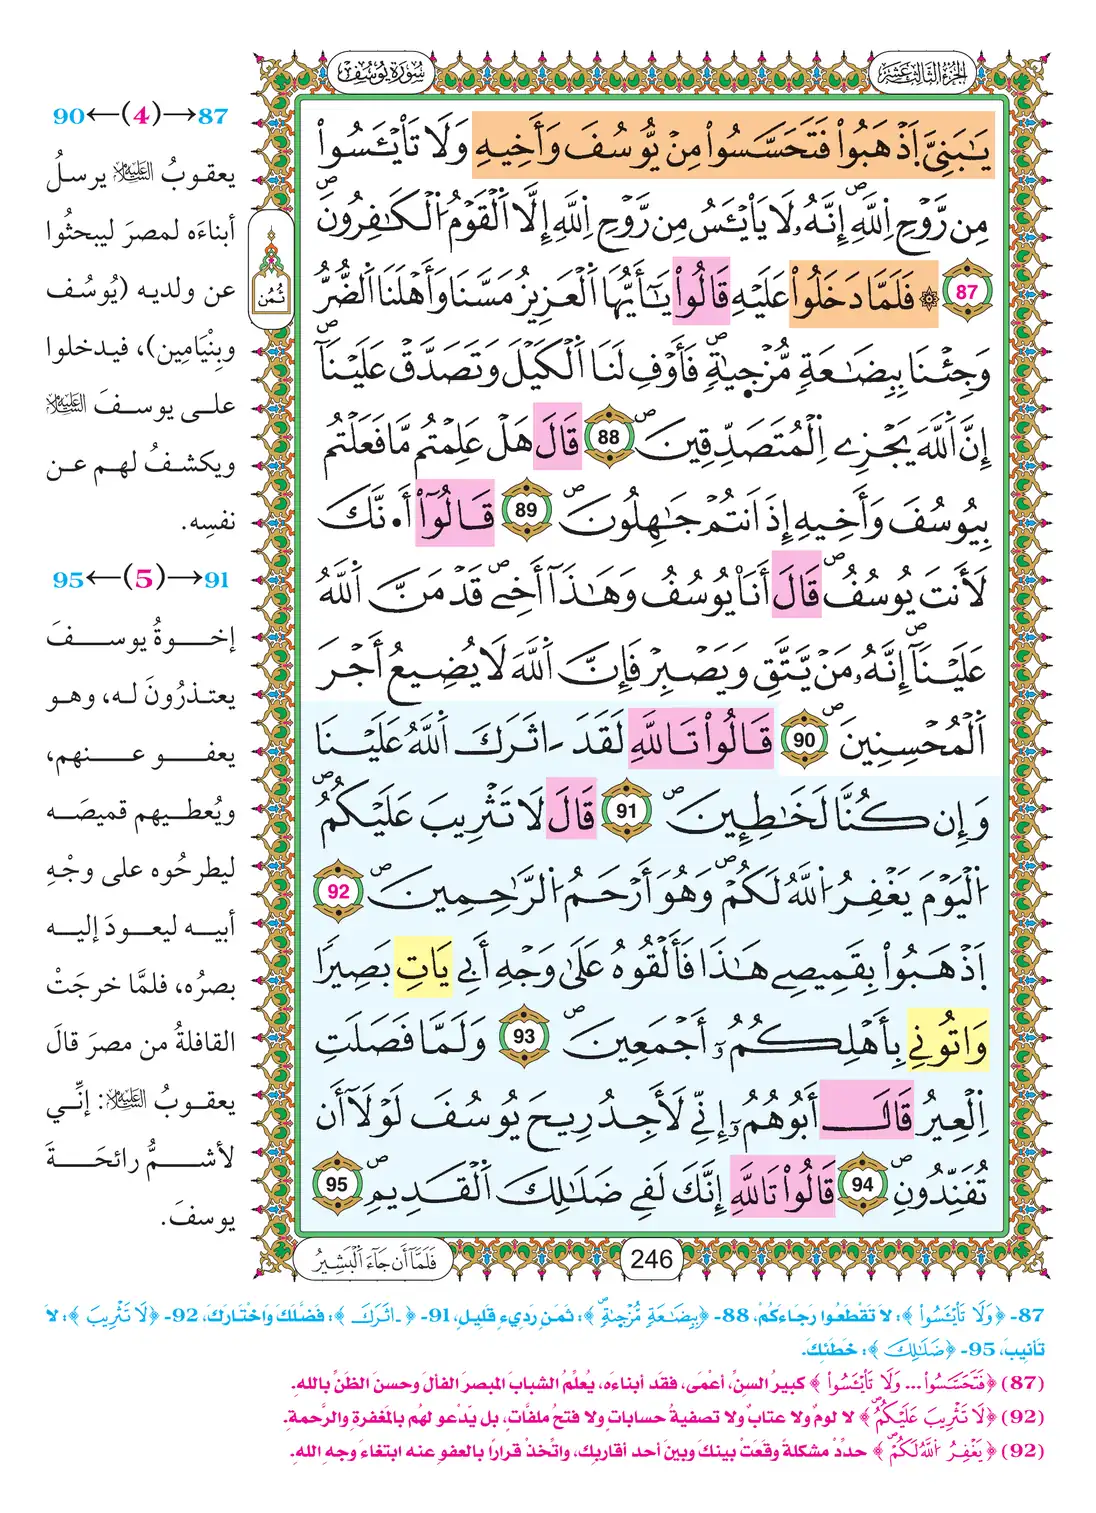 الجزء الثالث عشر
سورة يوسف
يَٰبَنِيَّ اَ۪ذْهَبُواْ فَتَحَسَّسُواْ مِنْ يُّوسُفَ وَأَخِيهِ وَلَا تَاْيْـَٔسُواْ
مِن رَّوْحِ اِ۬للَّهِ إِنَّهُۥ لَا يَاْيْـَٔسُ مِن رَّوْحِ اِ۬للَّهِ إِلَّا اَ۬لْقَوْمُ اُ۬لْكَٰفِرُونَ
87 ۞ فَلَمَّا دَخَلُواْ عَلَيْهِ قَالُواْ يَٰٓأَيُّهَا اَ۬لْعَزِيزُ مَسَّنَا وَأَهْلَنَا اَ۬لضُّرُّ
وَجِئْنَا بِبِضَٰعَةٍ مُّزْجَىٰةٍ فَأَوْفِ لَنَا اَ۬لْكَيْلَ وَتَصَدَّقْ عَلَيْنَآ
إِنَّ اَ۬للَّهَ يَجْزِے اِ۬لْمُتَصَدِّقِينَ 88 قَالَ هَلْ عَلِمْتُم مَّا فَعَلْتُم
بِيُوسُفَ وَأَخِيهِ إِذَ اَنتُمْ جَٰهِلُونَ 89 قَالُوٓاْ أَ۟نَّكَ
لَأَنتَ يُوسُفُ قَالَ أَنَا۠ يُوسُفُ وَهَٰذَآ أَخِے قَدْ مَنَّ اَ۬للَّهُ
عَلَيْنَآ إِنَّهُۥ مَنْ يَّتَّقِ وَيَصْبِرْ فَإِنَّ اَ۬للَّهَ لَا يُضِيعُ أَجْرَ
اَ۬لْمُحْسِنِينَ 90 قَالُواْ تَاللَّهِ لَقَدَ اٰثَرَكَ اَ۬للَّهُ عَلَيْنَا
وَإِن كُنَّا لَخَٰطِـِٕينَ 91 قَالَ لَا تَثْرِيبَ عَلَيْكُمُ
اُ۬لْيَوْمَ يَغْفِرُ اُ۬للَّهُ لَكُمْ وَهُوَ أَرْحَمُ اُ۬لرَّٰحِمِينَ 92
اَ۪ذْهَبُواْ بِقَمِيصِے هَٰذَا فَأَلْقُوهُ عَلَىٰ وَجْهِ أَبِي يَاتِ بَصِيرًا
وَاتُونِي بِأَهْلِكُمُۥٓ أَجْمَعِينَ 93 وَلَمَّا فَصَلَتِ
اِ۬لْعِيرُ قَالَ أَبُوهُمُۥٓ إِنِّي لَأَجِدُ رِيحَ يُوسُفَ لَوْلَآ أَن
تُفَنِّدُونِ 94 قَالُواْ تَاللَّهِ إِنَّكَ لَفِے ضَلَٰلِكَ اَ۬لْقَدِيمِ 95
ثُمُن
فَلَمَّآ أَن جَآءَ اَ۬لْبَشِيرُ
246
87→(4)←90
يعقوبُ عليه السلام يرسلُ
أبناءَه لمصرَ ليبحثُوا
عن ولديه (يُوسُف
وبِنْيَامِين)، فيدخلوا
على يوسفَ عليه السلام
ويكشفُ لهم عن
نفسِه.
91→(5)←95
إخوةُ يوسفَ
يعتذرُونَ له، وهو
يعفو عنهم،
ويُعطيهم قميصَه
ليطرحُوه على وجْهِ
أبيه ليعودَ إليه
بصرُه، فلمَّا خرجَتْ
القافلةُ من مصرَ قالَ
يعقوبُ عليه السلام: إنِّي
لأشمُّ رائحَةَ
يوسفَ.
87- ﴿وَلَا تَاْيْـَٔسُواْ﴾: لا تَقْطَعُوا رجَاءَكُمْ، 88- ﴿بِبِضَٰعَةٍ مُّزْجَىٰةٍ﴾: ثَمَنٍ رَدِيءٍ قَلِيلٍ، 91- ﴿اٰثَرَكَ﴾: فَضَّلَكَ وَاخْتَارَكَ، 92- ﴿لَا تَثْرِيبَ﴾: لا
تَأنِيبَ، 95- ﴿ضَلَٰلِكَ﴾: خَطَئِكَ.
(87) ﴿فَتَحَسَّسُواْ ... وَلَا تَاْيْـَٔسُواْ﴾ كبيرُ السنِّ، أعْمَى، فقد أبناءَه، يُعلِّمُ الشبابَ المبصرَ الفألَ وحسنَ الظنِّ بالله.
(92) ﴿لَا تَثْرِيبَ عَلَيْكُمُ﴾ لا لومٌ ولا عتابٌ ولا تصفيةُ حساباتٍ ولا فتحُ ملفَّاتٍ، بل يَدْعو لهُم بالمَغفرةِ والرَّحمةِ.
(92) ﴿يَغْفِرُ اُ۬للَّهُ لَكُمْ﴾ حدِّدْ مشكلةً وقعَتْ بينكَ وبينَ أحد أقاربِك، واتَّخذْ قرارًا بالعفوِ عنه ابتغاءَ وجهِ اللهِ.